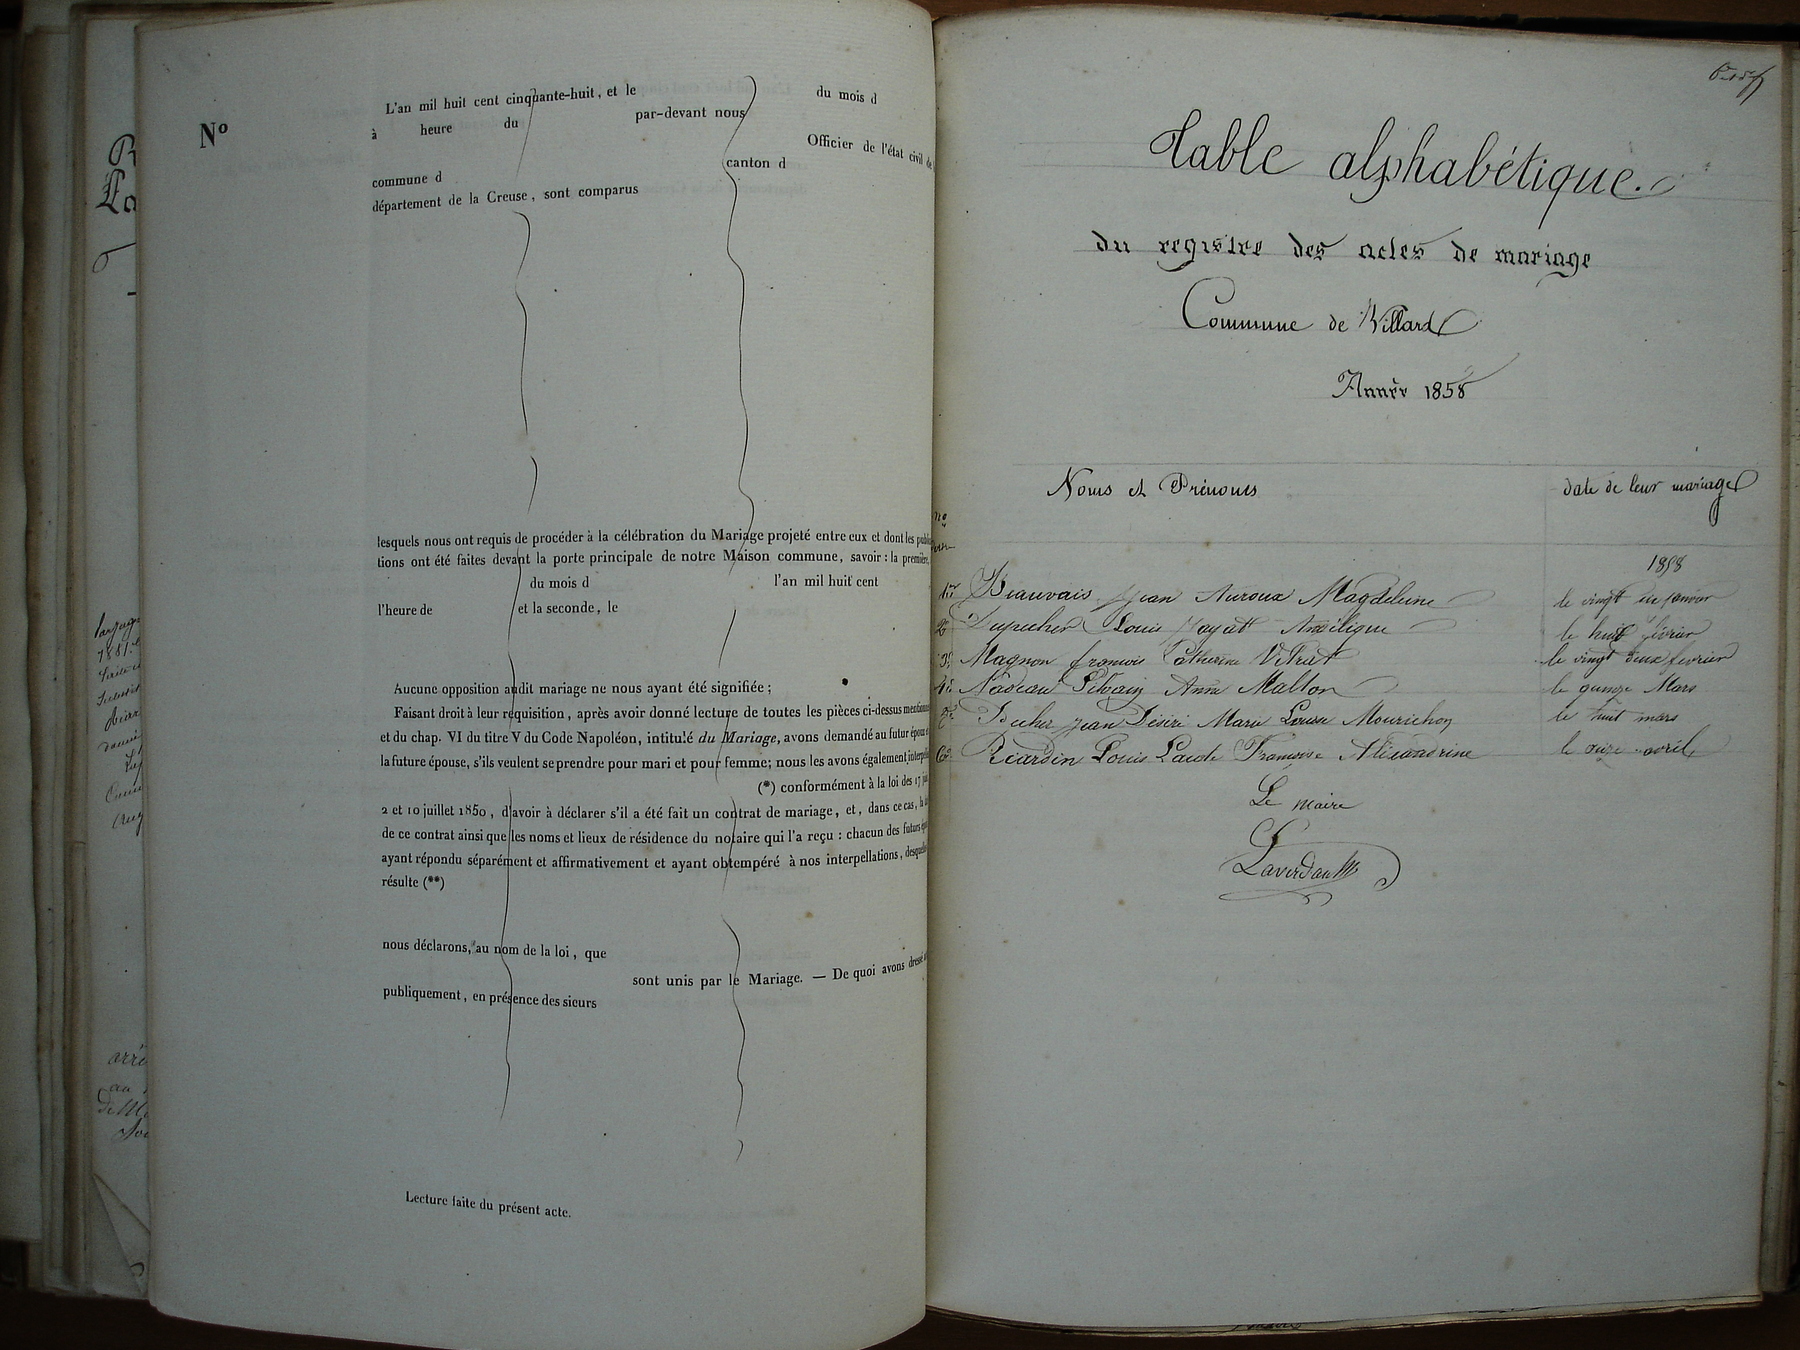 Nº
L'an mil huit cent cinquante-huit, et le du mois d
à heure du par-devant nous
Officier de l'état civil de
commune d canton d
département de la Creuse, sont comparus
lesquels nous ont requis de procéder à la célébration du Mariage projeté entre eux et dont les
tions ont été faites devant la porte principale de notre Maison commune, savoir : la première,
du mois d l'an mil huit cent
l'heure de et la seconde, le
Aucune opposition audit mariage ne nous ayant été signifiée ;
Faisant droit à leur réquisition, après avoir donné lecture de toutes les pièces ci-dessus
et du chap. VI du titre V du Code Napoléon, intitulé du Mariage, avons demandé au futur époux
la future épouse, s'ils veulent se prendre pour mari et pour femme; nous les avons également
(*) conformément à la loi des 17
2 et 10 juillet 1850, d'avoir à déclarer s'il a été fait un contrat de mariage, et, dans ce cas, la
de ce contrat ainsi que les noms et lieux de résidence du notaire qui l'a reçu : chacun des futurs
ayant répondu séparément et affirmativement et ayant obtempéré à nos interpellations,
résulte (**)
nous déclarons, au nom de la loi, que
sont unis par le Mariage. — De quoi avons dressé
publiquement, en présence des sieurs
Lecture faite du présent acte.
Table alphabétique.
du registre des actes de mariage
Commune de Villard
Année 1858
Noms et Prénoms date de leur mariage
1858
Beauvais Jean Auroux Magdeleine le vingt un janvier
Dupecher Louis Angélique le huit février
Magnon françois Catherine le vingt deux fevrier
Nadeau Silvain Anne Malton le quinze Mars
Jean Désiré Marie Louise Mourichon le huit mars
Louis Françoise Alexandrine le onze avril
Le maire